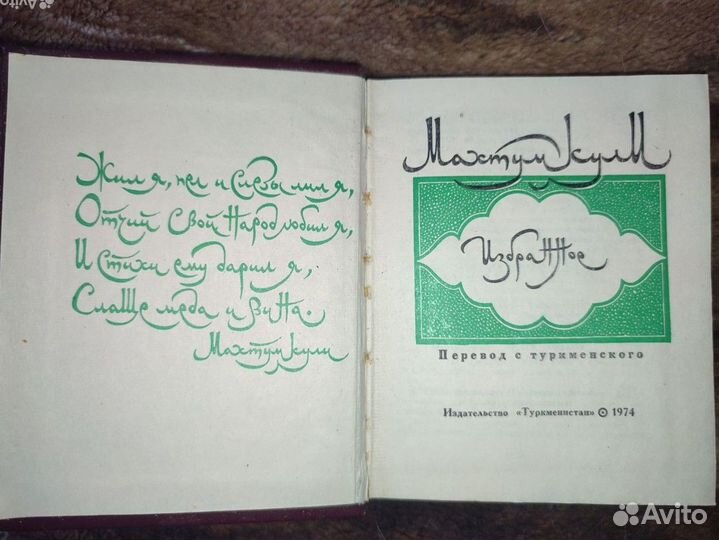 Avito
Жил я, пел и слезы лил я,
Отчий свой народ любил я,
И стихи ему дарил я,
Слаще меда и вина.
Махтумкули
Махтумкули
Избранное
Перевод с туркменского
Издательство «Туркменистан» 1974
Avito